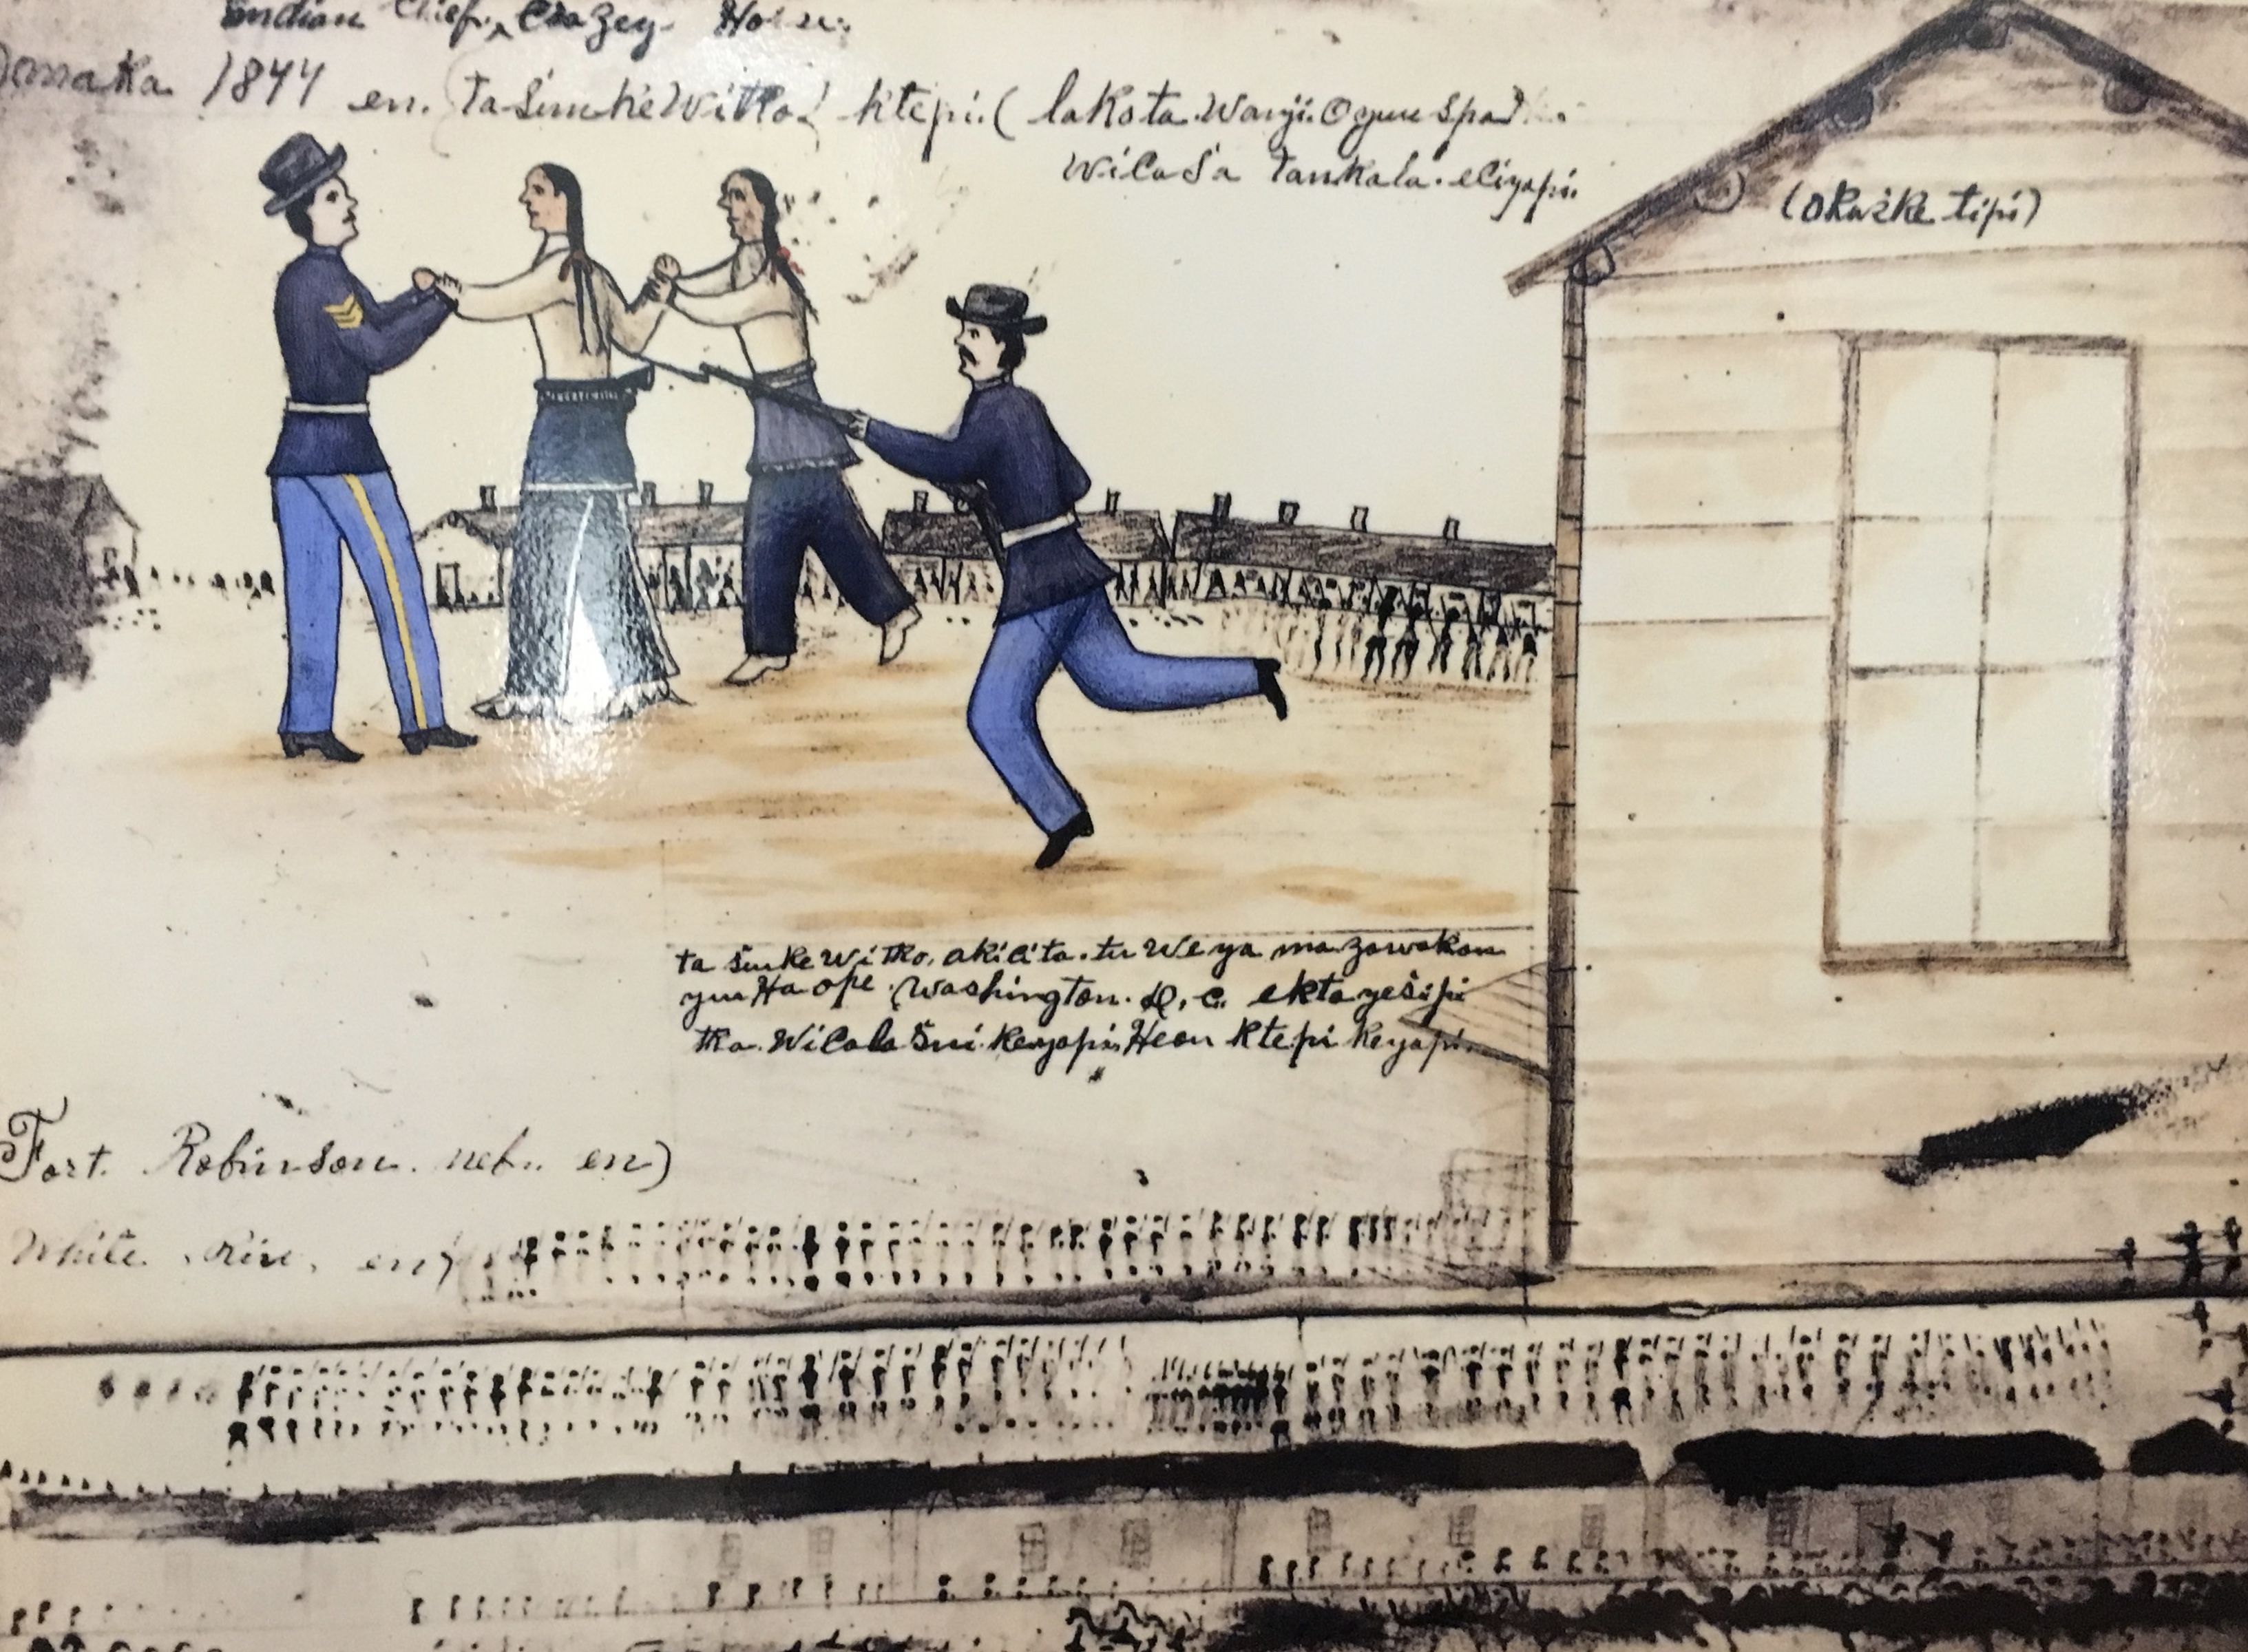 Indian Chief, Crazey Horse.
Omaka 1844 en. Ta Šunke Witko) ktepi. ( lakota. Wanji. Oyuspa
Wicaša Tankala. eciyapi.
(okaške tipi)
ta šunke Witko. akicita. tuWeya mazawakan
yuHa ope. Washington. D. C. ekta yešipi
tka. Wicala šni. keyapi. Heon ktepi keyapi.
Fort. Robinson. neb.. en)
White. riv. en)